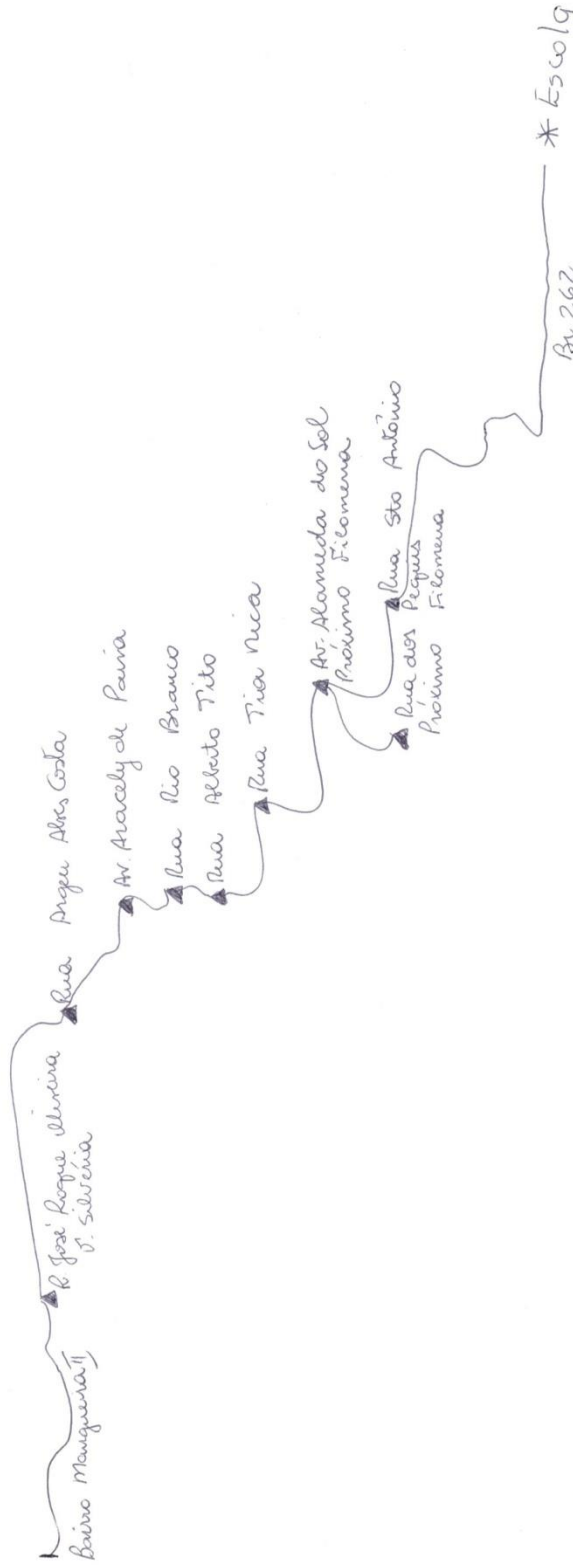 Bairro Mangueira II
R José Roque Oliveira
J. Silvéria
Rua Argeu Alves Costa
Av. Aracely de Paiva
Rua Rio Branco
Rua Alberto Tito
Rua Tia Nica
Av. Alameda do Sol
Próximo Filomena
Rua dos Pequis
Próximo Filomena
Rua Sto Antônio
Br 262
* Escola